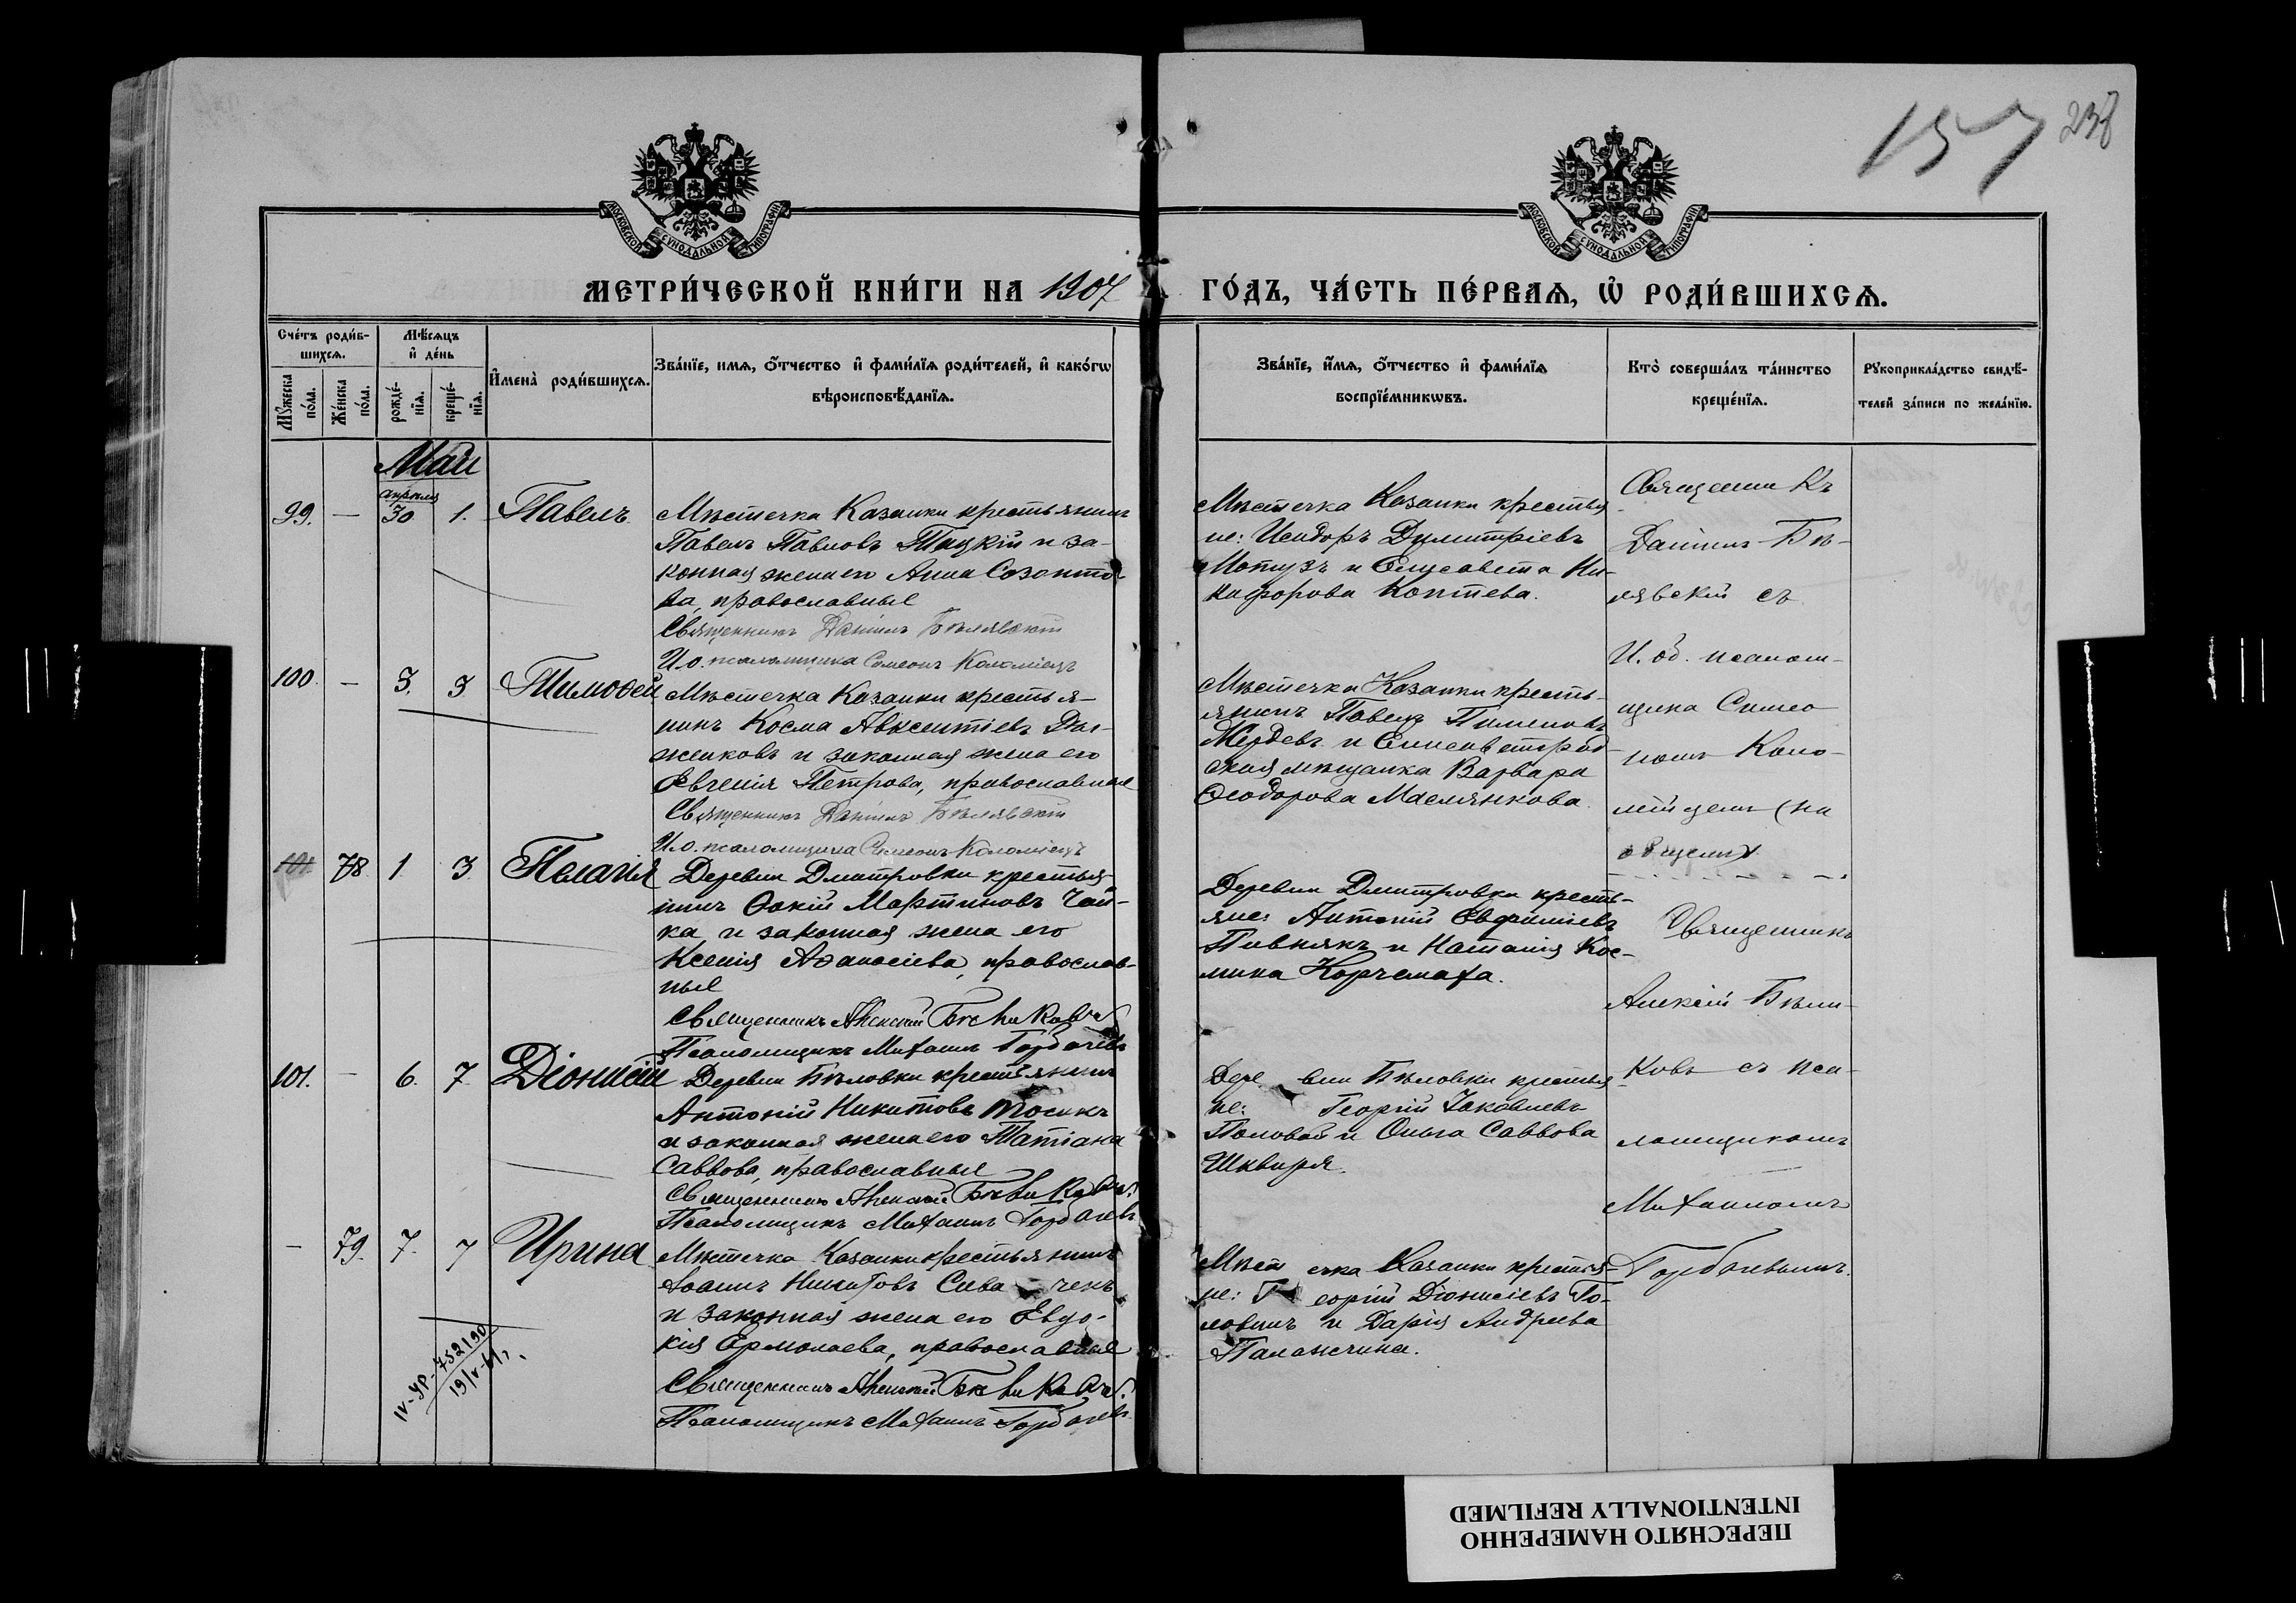 157 238
МОСКОВСКОЙ СѴНОДАЛЬНОЙ ТИПОГРАФІИ
МОСКОВСКОЙ СѴНОДАЛЬНОЙ ТИПОГРАФІИ
МЕТРИ́ЧЕСКОЙ КНИ́ГИ НА 1907 ГО́ДЪ, ЧА́СТЬ ПЕ́РВАѦ, Ѡ҆ РОДИ́ВШИХСѦ.
Сче́тъ роди́в-
шихсѧ.
Мꙋ́жеска по́ла.
Же́нска по́ла.
Мѣ́сѧцъ
и҆ де́нь
рожде́-
нїѧ.
креще́-
нїѧ.
И҆мена̀ роди́вшихсѧ.
Зва́нїе, имѧ, ѻ҆́тчество и҆ фами́лїѧ роди́телей, и҆ како́гѡ
вѣроисповѣ́данїѧ.
Зва́нїе, и҆́мѧ, ѻ҆́тчество и҆ фами́лїѧ
воспрїе́мникѡвъ.
Кто̀ соверша́лъ та́инство
креще́нїѧ.
Рꙋкоприкла́дство свидѣ́-
телей за́писи по жела́нїю.
Май
99. — апрѣля 30 1. Павелъ
Мѣстечка Казанки крестьянинъ
Павелъ Павловъ Тицкій и за-
конная жена его Анна Созонто-
ва, православные
Священникъ Даніилъ Бѣлявскій
И.о. псаломщика Симеонъ Коломіецъ
Мѣстечка Казанки крестья-
не: Исидоръ Димитріевъ
Мотузъ и Елисавета Ни-
кифорова Коптева.
Священникъ
Даніилъ Бѣ-
лявскій съ
И. об. псалом-
щика Симео-
номъ Коло-
мійцемъ (на
100. — 3. 3 Тимоѳей
Мѣстечка Казанки крестья-
нинъ Косма Авксентіевъ
и законная жена его
Евгенія Петрова, православные
Священникъ Даніилъ Бѣлявскій
И.о. псаломщика Симеонъ Коломіецъ
Мѣстечка Казанки кресть-
янинъ Павелъ Пименовъ
и Елисаветград-
ская мѣщанка Варвара
Ѳеодорова Маслянкова.
101. 78. 1. 3. Пелагія
Деревни Дмитровки крестья-
нинъ Ѳокій Мартиновъ Чай-
ка и законная жена его
Ксенія Аѳанасіева, православ-
ные
Священникъ Алексій Бѣликовъ
Псаломщикъ Михаилъ Горбачевъ
Деревни Дмитровки кресть-
яне: Антоній Евфиміевъ
Пивнякъ и Наталія Кос-
мина Корчемаха.
Священникъ
Алексій Бѣли-
ковъ съ пса-
ломщикомъ
Михаиломъ
Горбачевымъ.
101. — 6. 7. Діонисій
Деревни Бѣловки крестьянинъ
Антоній Никитовъ Тосикъ
и законная жена его Татіана
Саввова, православные
Священникъ Алексій Бѣликовъ
Псаломщикъ Михаилъ Горбачевъ
Деревни Бѣловки крестья-
не: Георгій Іаковлевъ
Половой и Ольга Саввова
Шквиря.
— 79. 7. 7 Ирина
Мѣстечка Казанки крестьянинъ
Іоаннъ Никитовъ Сиваченъ
и законная жена его Евдо-
кія Ермолаева, православные
Священникъ Алексій Бѣликовъ
Псаломщикъ Михаилъ Горбачевъ
Мѣстечка Казанки крестья-
не: Георгій Діонисіевъ Го-
ловинъ и Дарія Андреева
Паламсчина.
IV-УР-752190
ПЕРЕСНЯТО НАМЕРЕННО
INTENTIONALLY REFILMED